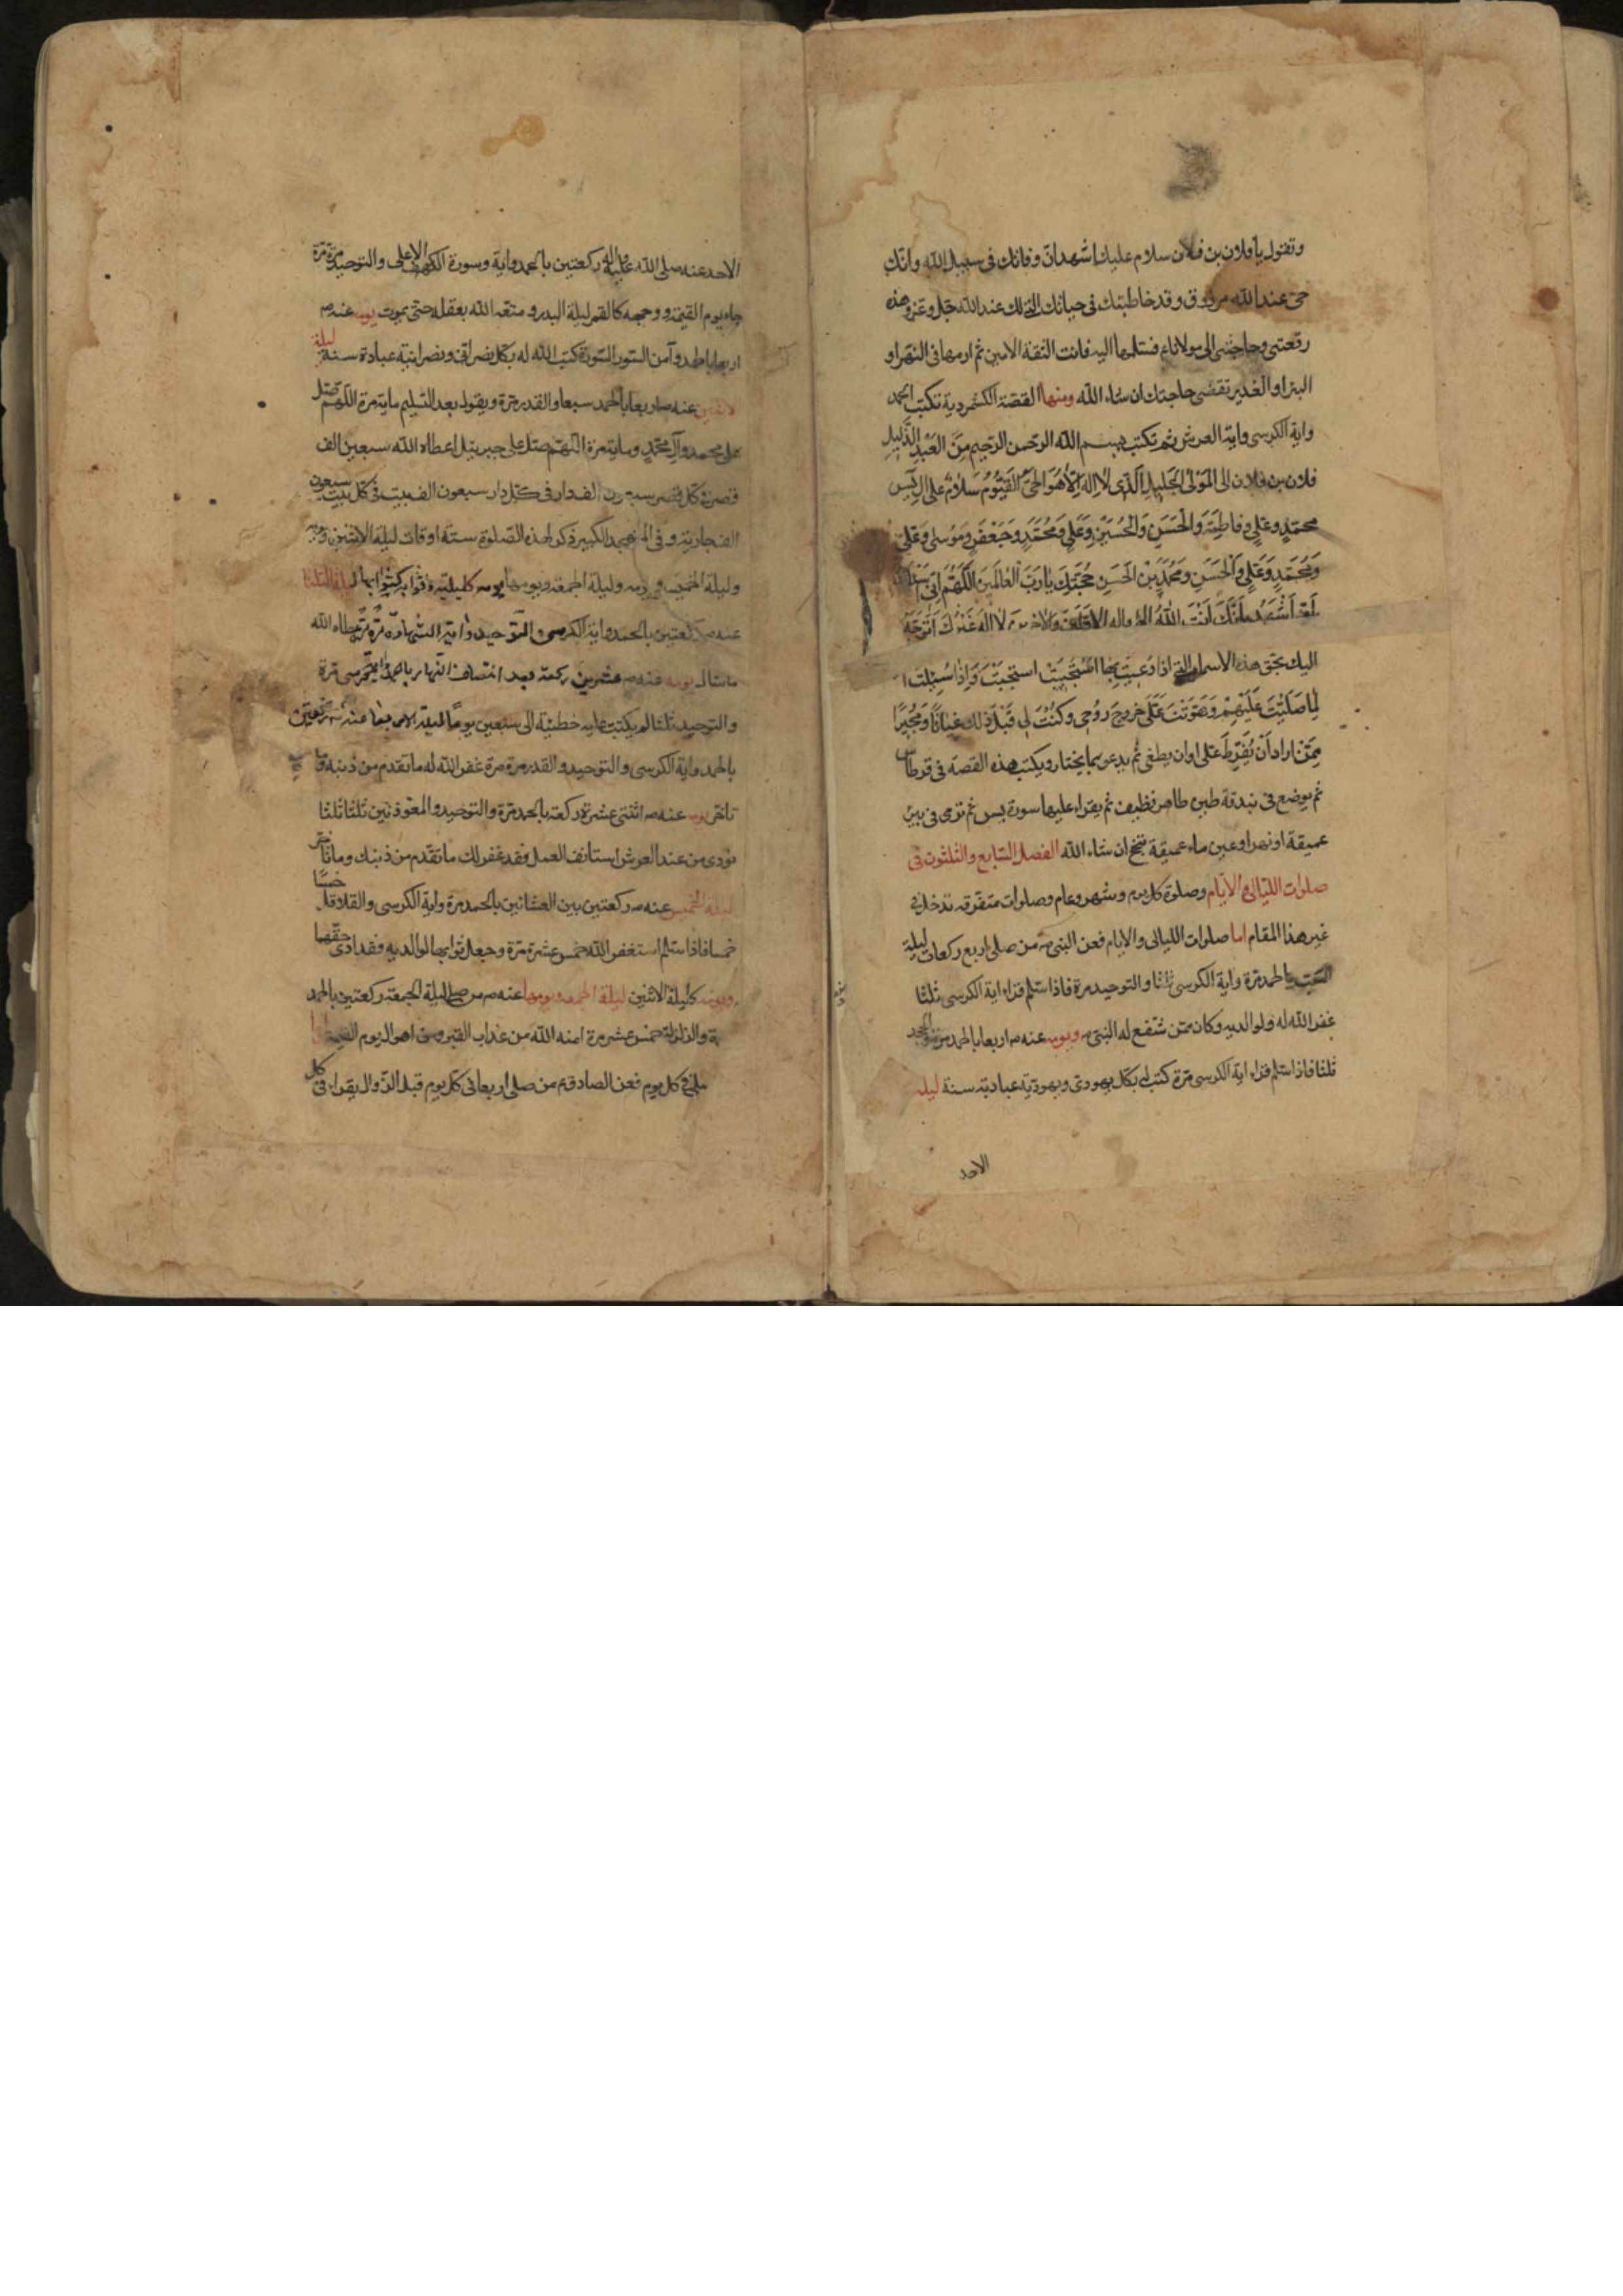 وتقول يا فلان بن فلان سلام عليك اشهد ان وفاتك في سبيل الله وانك
حي عند الله مرزوق وقد خاطبتك في حياتك التي لك عند الله جل وعز وهذه
رقعتي وحاجتي الى مولانا ع فسلمها اليه فانت الثقة الامين ثم ارمها في النهر او
البئر او الغدير تقضى حاجتك ان شاء الله ومنها القصة الكشمردية تكتب الحمد
واية الكرسي واية العرش ثم تكتب بسم الله الرحمن الرحيم من العبد الذليل
فلان بن فلان الى المولى الجليل الذي لا اله الا هو الحي القيوم سلام على ال يس
محمد وعلي وفاطمة والحسن والحسين وعلي ومحمد وجعفر وموسى وعلي
ومحمد وعلي والحسن ومحمد بن الحسن حجتك يا رب العالمين اللهم اني
اشهد بانك انت الله اله الاولين والاخرين لا اله غيرك اتوجه
اليك بحق هذه الاسماء التي اذا دعيت بها استجبت واذا سئلت
لما صليت عليهم وهونت علي خروج روحي وكنت لي قبل ذلك غياثا ومجيرا
ممن اراد ان يفرط علي او ان يطغى ثم يدعو بما يختار ويكتب هذه القصة في قرطاس
ثم يوضع في بندقة طين طاهر نظيف ثم يقراء عليها سورة يس ثم ترمى في بئر
عميقة او نهر او عين ماء عميقة تنجح ان شاء الله الفصل السابع والثلثون في
صلوات الليالي والايام وصلوة كل يوم وشهر وعام وصلوات متفرقه تدخل في
غير هذا المقام اما صلوات الليالي والايام فعن النبي ص من صلى اربع ركعات ليلة
السبت بالحمد مرة واية الكرسي ثلثا والتوحيد مرة فاذا سلم قراء اية الكرسي ثلثا
غفر الله له ولوالديه وكان ممن شفع له النبي ص ويومه عنه ص اربعا بالحمد مرة والجحد
ثلثا فاذا سلم قراء اية الكرسي مرة كتب له بكل يهودي ويهودية عبادة سنة ليلة
الاحد
الاحد عنه صلى الله عليه واله ركعتين بالحمد واية وسورة الاعلى والتوحيد مرة مرة
جاء يوم القيمة ووجهه كالقمر ليلة البدر ومتعه الله بعقله حتى يموت يومه عنه ص
اربعا بالحمد وآمن السورة كتب الله له بكل نصراني ونصرانية عبادة سنة ليلة
الاثنين عنه ص اربعا بالحمد سبعا والقدر مرة ويقول بعد التسليم ماية مرة اللهم صل
على محمد وآل محمد وماية مرة اللهم صل على جبريئل اعطاه الله سبعين الف
قصر في كل قصر سبعون الف دار في كل دار سبعون الف بيت في كل بيت سبعون
الف جارية وفي المتهجد الكبير ذكر لهذه الصلوة ستة اوقات ليلة الاثنين ويومه
وليلة الخميس ويومه وليلة الجمعة ويومها يومه كليلته ليلة الثلثا
عنه ص ركعتين بالحمد واية الكرسي والتوحيد واية الشهادة مرة مرة اعطاه الله
ما سال يومه عنه ص عشرين ركعة بعد انتصاف النهار بالحمد واية الكرسي مرة
والتوحيد ثلثا لم يكتب عليه خطيئة الى سبعين يوما ليلة الاربعا عنه ص ركعتين
بالحمد واية الكرسي والتوحيد والقدر مرة مرة غفر الله له ما تقدم من ذنبه وما
تاخر يومه عنه ص اثنتي عشرة ركعة بالحمد مرة والتوحيد والمعوذتين ثلثا ثلثا
نودي من عند العرش استانف العمل فقد غفر لك ما تقدم من ذنبك وما تاخر
ليلة الخميس عنه ص ركعتين بين العشائين بالحمد مرة واية الكرسي والقلاقل خمسا
خمسا فاذا سلم استغفر الله خمس عشرة مرة وجعل ثوابها لوالديه فقد ادى حقهما
ويومه كليلة الاثنين ليلة الجمعة ويومها عنه ص من صلى ليلة الجمعة ركعتين بالحمد
والزلزلة خمس عشر مرة امنه الله من عذاب القبر ومن اهوال يوم القيمة اما
في كل يوم فعن الصادق ع من صلى اربعا في كل يوم قبل الزوال يقراء في كل